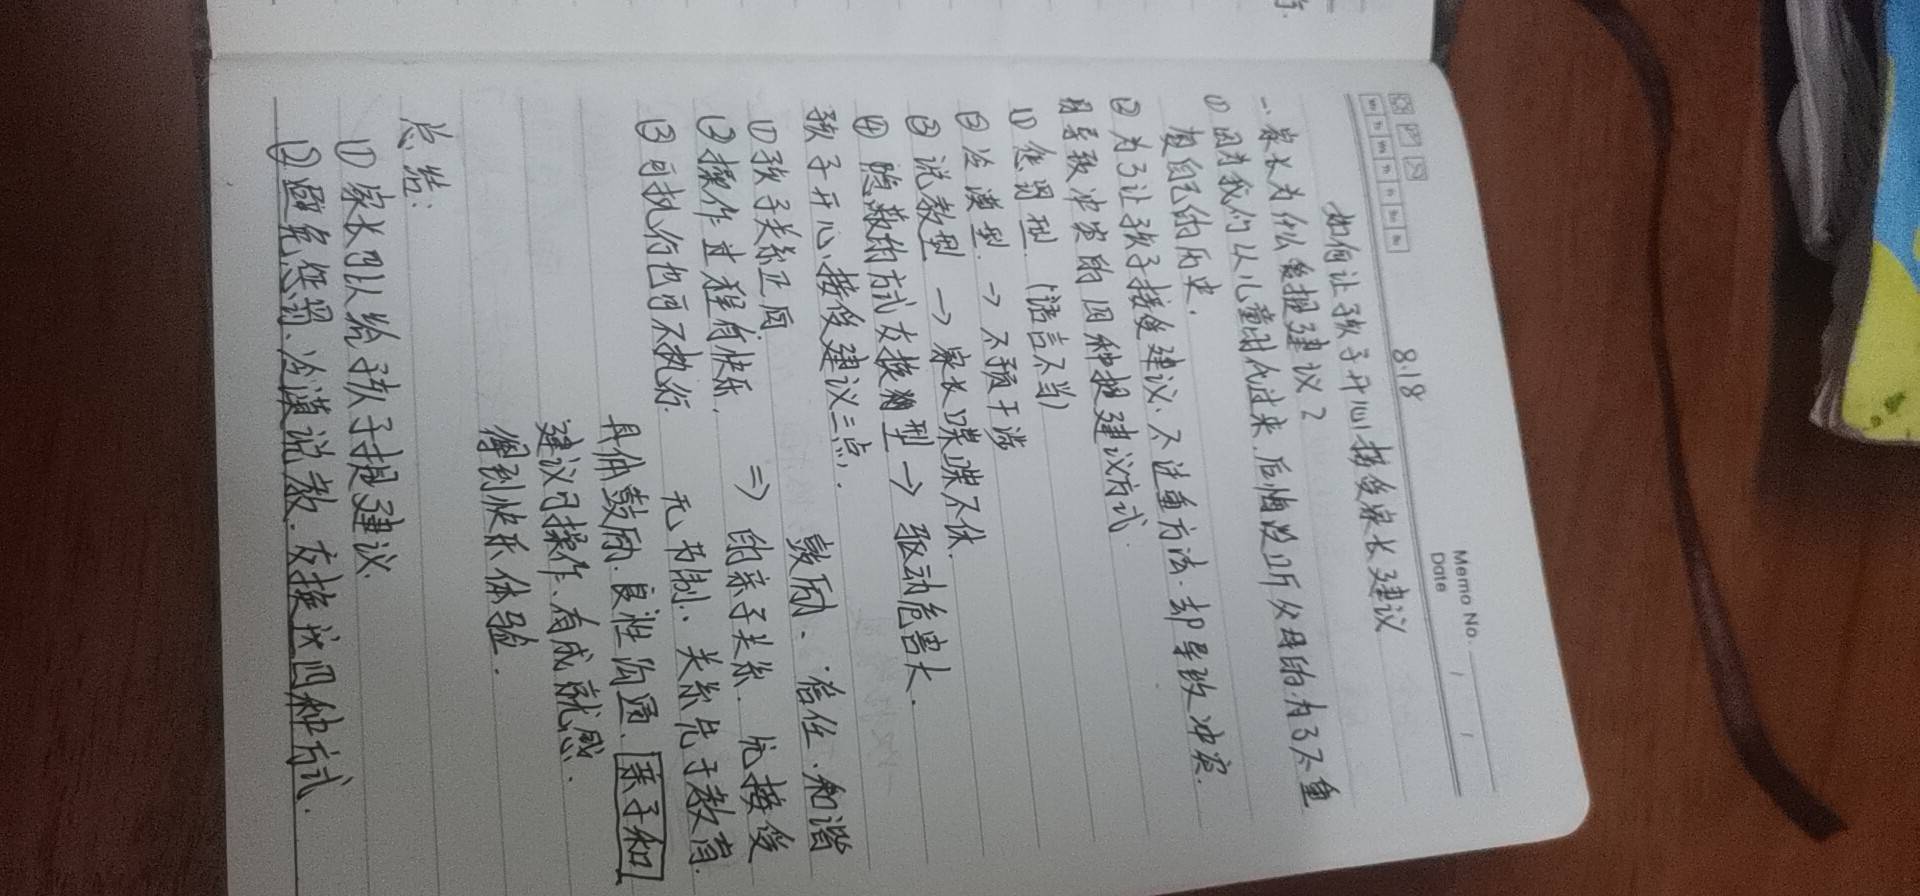 Memo No.
Date
8.18
如何让孩子开心接受家长建议
一.家长为什么要提建议?
①因为我们从儿童时代过来.后悔没听父母的.为了不重
复自己的历史.
②为了让孩子接受建议.不注重方法.却导致冲突.
易导致冲突的四种提建议方式.
①惩罚型.(语言不当)
②冷漠型.→不预干涉
③说教型→家长喋喋不休.
④隐蔽的方式交换型→驱动危害大.
孩子开心接受建议三点.
鼓励.信任.和谐
①孩子关系正向
②操作过程有快乐. ⇒的亲子关系.优接受
③可执行也可不执行. 无节制.关系先于教育.
具体鼓励.良性沟通.亲子和
建议可操作.有成就感.
得到快乐体验.
总结:
①家长可以给孩子提建议.
②避免惩罚.冷漠说教.交换式四种方式.